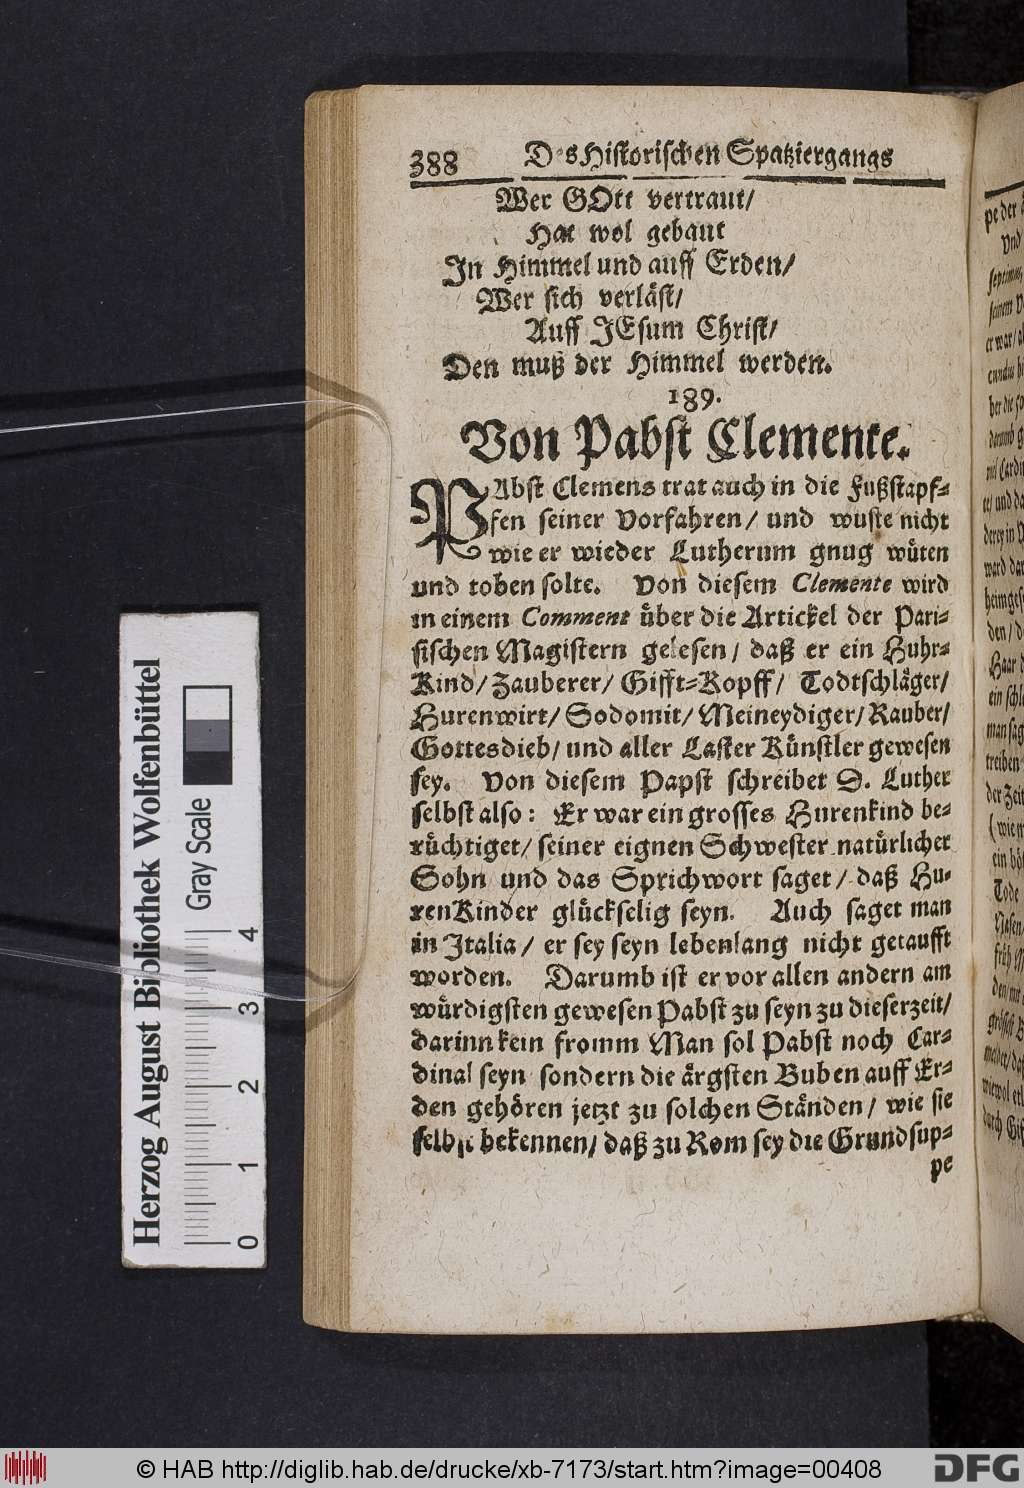 388 Des Historischen Spatziergangs
Wer GOtt vertraut/
Hat wol gebaut
In Himmel und auff Erden/
Wer sich verläst/
Auff JEsum Christ/
Den muß der Himmel werden.
189.
Von Pabst Clemente.
PAbst Clemens trat auch in die Fußstapf-
fen seiner Vorfahren/ und wuste nicht
wie er wieder Lutherum gnug wüten
und toben solte. Von diesem Clemente wird
in einem Comment über die Artickel der Pari-
sischen Magistern gelesen/ daß er ein Huhr-
Kind/ Zauberer/ Gifft-Kopff/ Todtschläger/
Hurenwirt/ Sodomit/ Meineydiger/ Rauber/
Gottesdieb/ und aller Laster Künstler gewesen
sey. Von diesem Papst schreibet D. Luther
selbst also: Er war ein grosses Hurenkind be-
rüchtiget/ seiner eignen Schwester natürlicher
Sohn und das Sprichwort saget/ daß Hu-
renKinder glückselig seyn. Auch saget man
in Italia/ er sey seyn lebenlang nicht getaufft
worden. Darumb ist er vor allen andern am
würdigsten gewesen Pabst zu seyn zu dieserzeit/
darinn kein fromm Man sol Pabst noch Car-
dinal seyn sondern die ärgsten Buben auff Er-
den gehören jetzt zu solchen Ständen/ wie sie
selbst bekennen/ daß zu Rom sey die Grundsup-
pe
pe der
Und
septimus,
seinem
er war/
cundus
ber die
darumb
und Cardi
und da
derey in
ward dar
heimges
den/
Haar
ein schl
man sag
treiben
der Zeit
(wie m
ein bös
Tode
Nasen
früh
den/ mit
gröste
melder/ daß
wiewol etl
durch Gif
Herzog August Bibliothek Wolfenbüttel
Gray Scale
0 1 2 3 4
© HAB http://diglib.hab.de/drucke/xb-7173/start.htm?image=00408
DFG